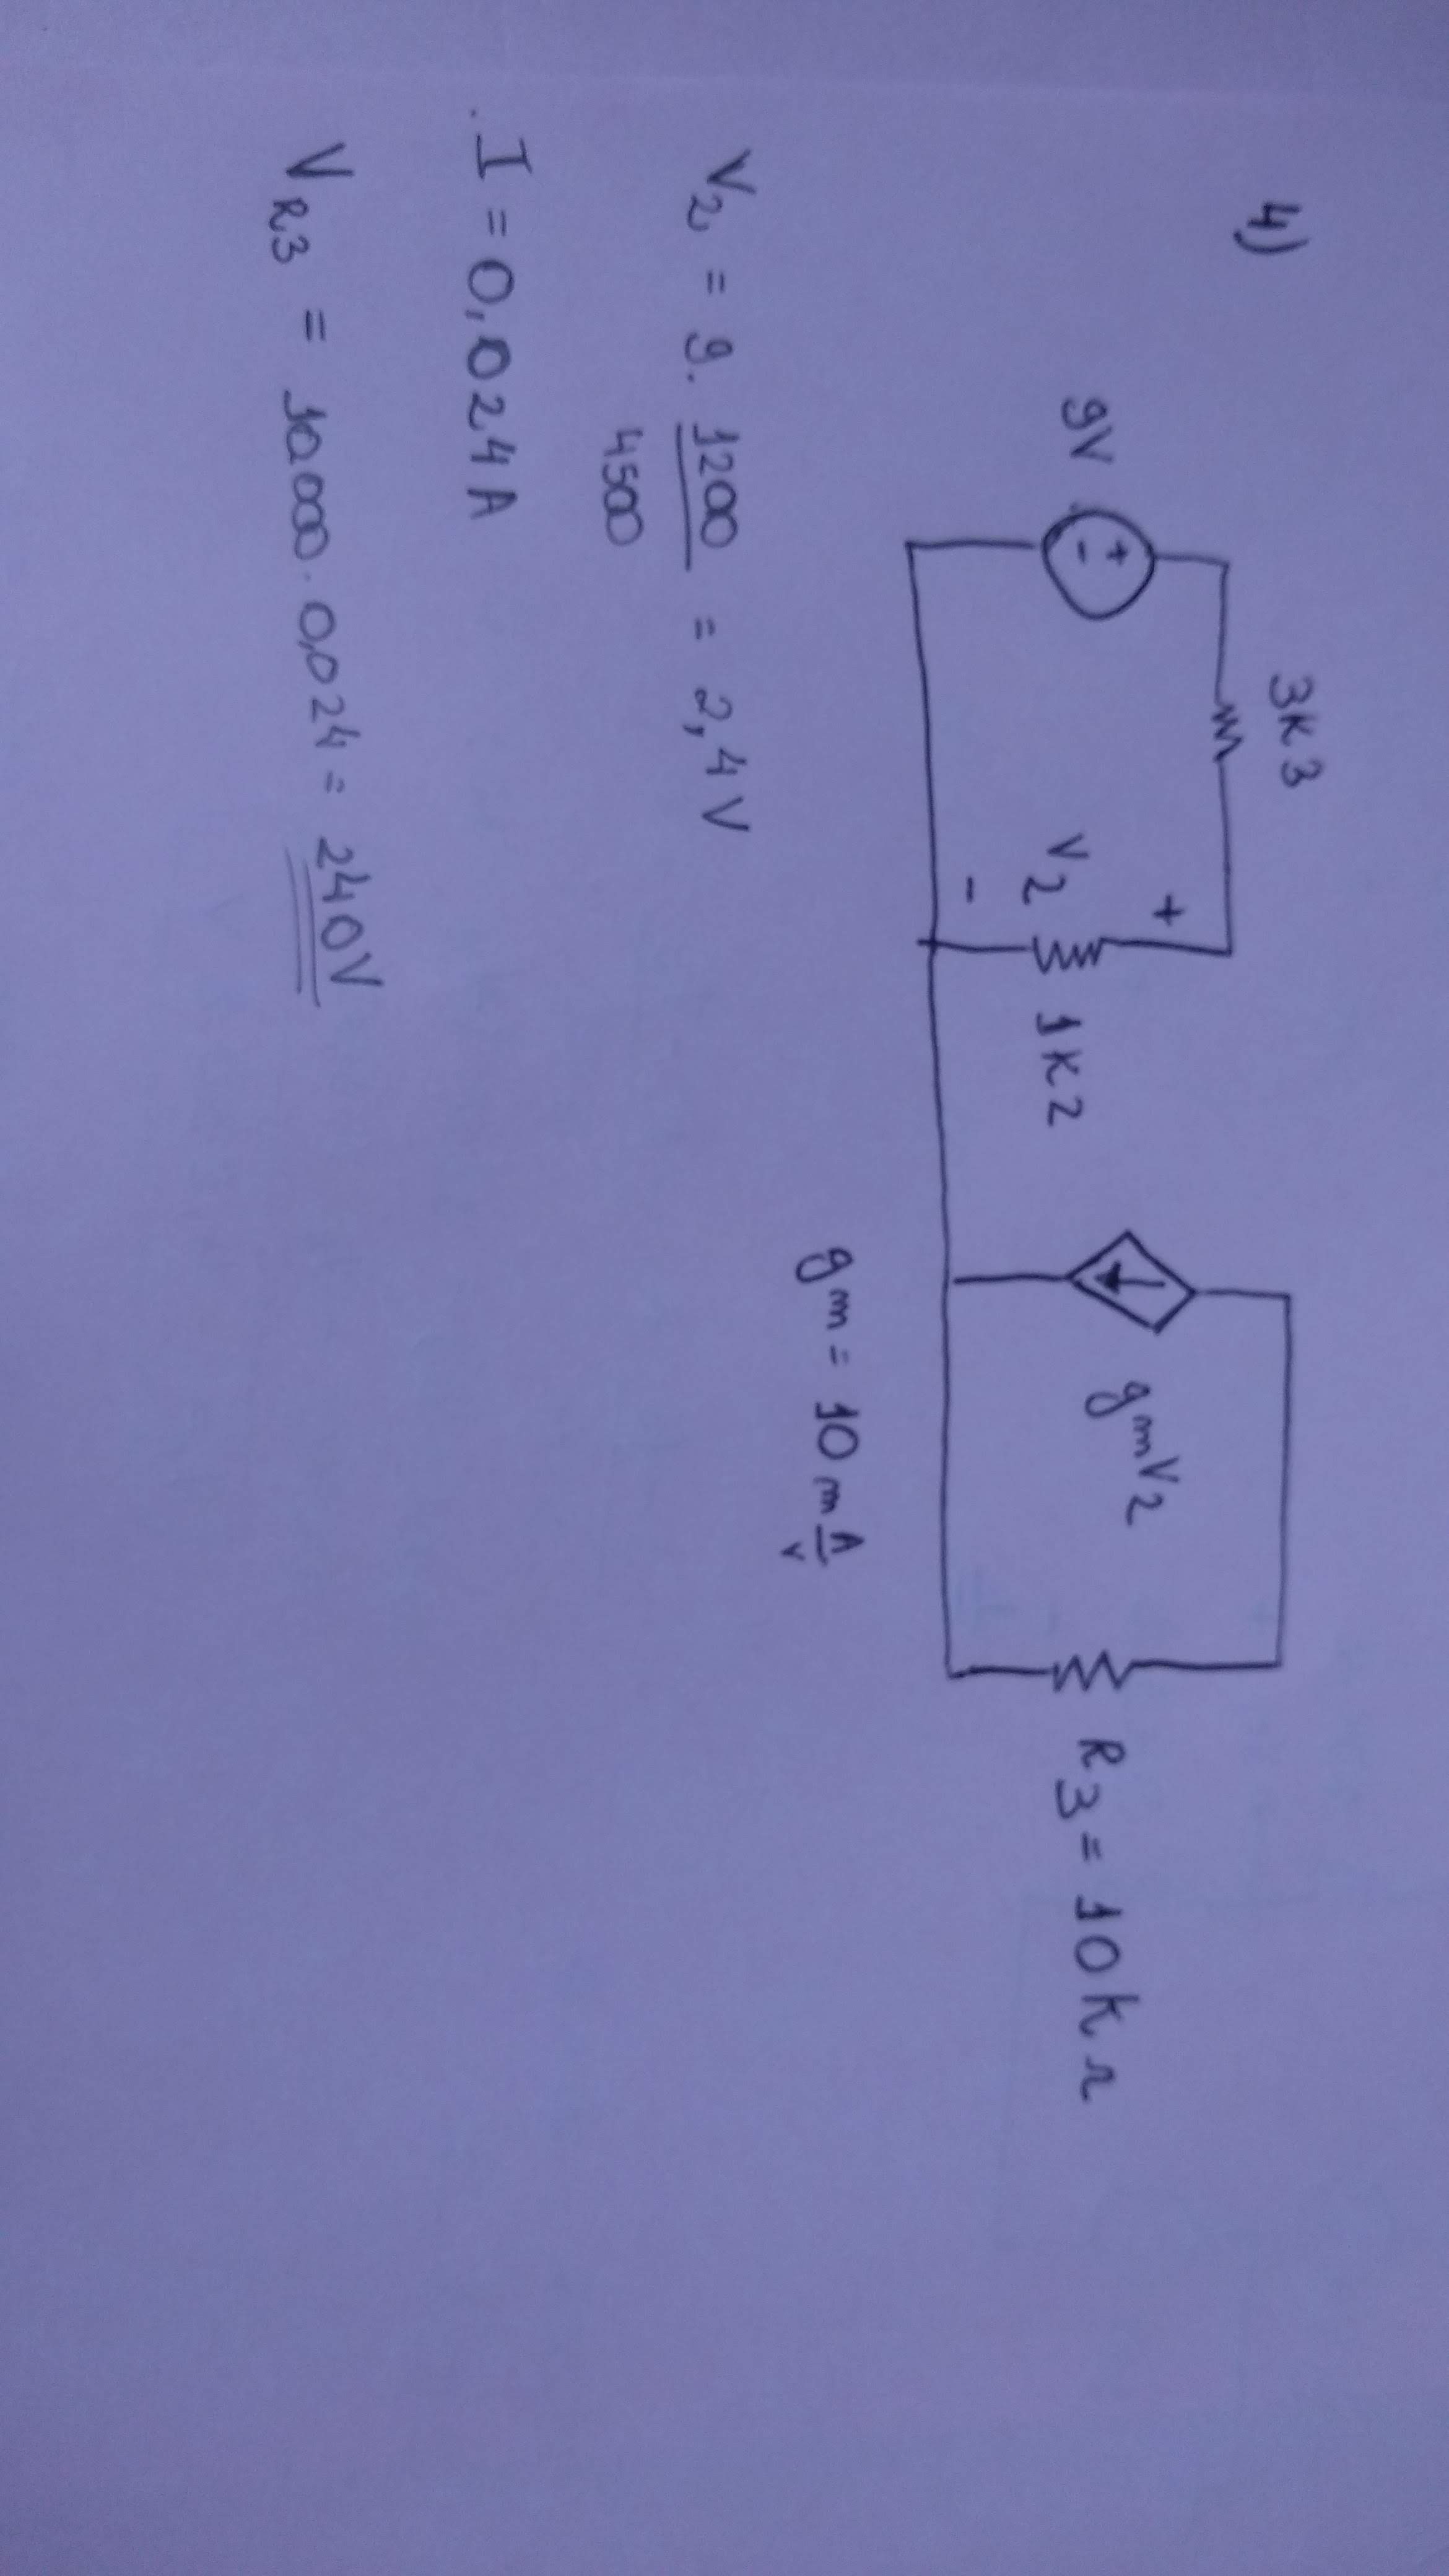 4)
3K3
+
9V
+
-
V2
1K2
-
gmV2
R3 = 10KΩ
gm = 10 m A/V
V2 = 9. 1200/4500 = 2,4 V
I = 0,024 A
VR3 = 10.000. 0,024 = 240V